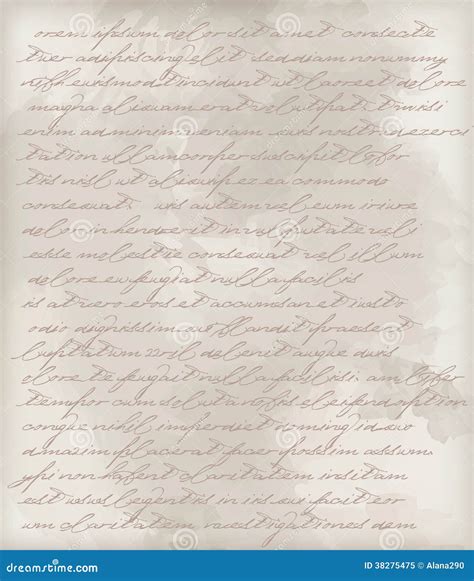 orem ipsum dolor sit amet consecte
tuer adipiscing elit sed diam nonummy
nibh euismod tincidunt ut laoreet dolore
magna aliquam erat volutpat ut wisi
enim ad minim veniam quis nostru exerci
tation ullamcorper suscipit lobor
tis nisl ut aliquip ex ea commodo
consequat uis autem vel eum iriure
dolor in hendrerit in vulputate veli
esse molestie consequat vel illum
dolore eu feugiat nulla facilis
is at vero eros et accumsan et iusto
odio dignissim qui blandit praesent
luptatum zzril delenit augue duis
olore te feugait nulla facilisi am liber
tempor cum soluta nobis eleifend option
congue nihil imperdiet doming id quo
d mazim placerat facer possim assum
ypi non habent claritatem insitam
est usus legentis in iis qui facit eor
um claritatem nvestigationes dem
dreamstime
Download from
Dreamstime.com
This watermarked comp image is for previewing purposes only.
ID 38275475
© Alana290